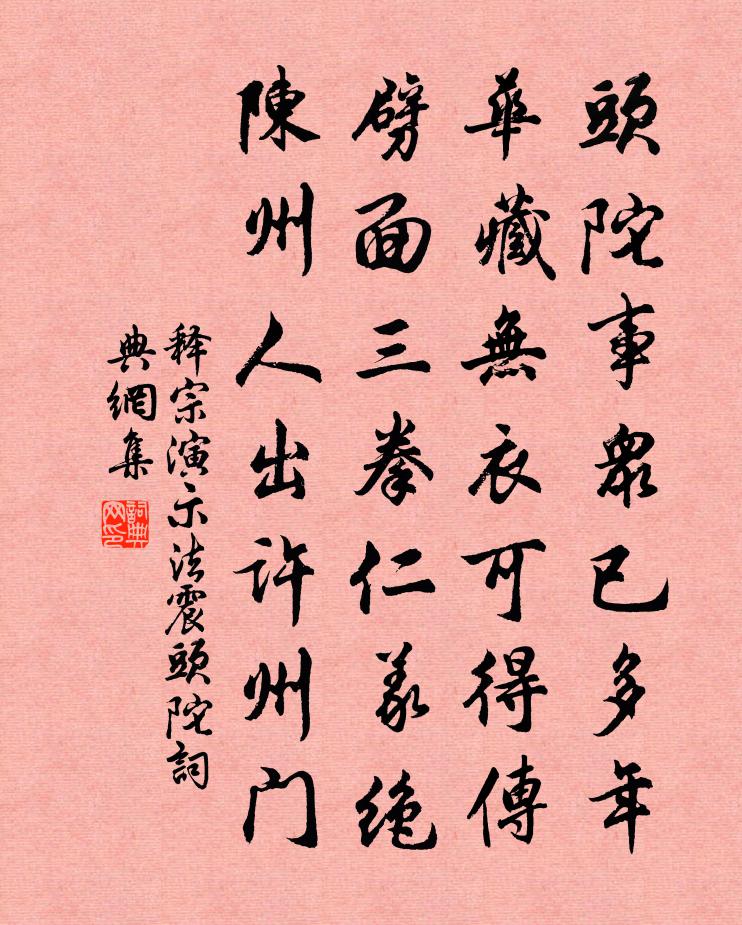 頭陀事衆已多年
華藏無衣可得傳
劈面三拳仁義絶
陳州人出許州门
释宗演示法震頭陀詞
典網集
詞典網印